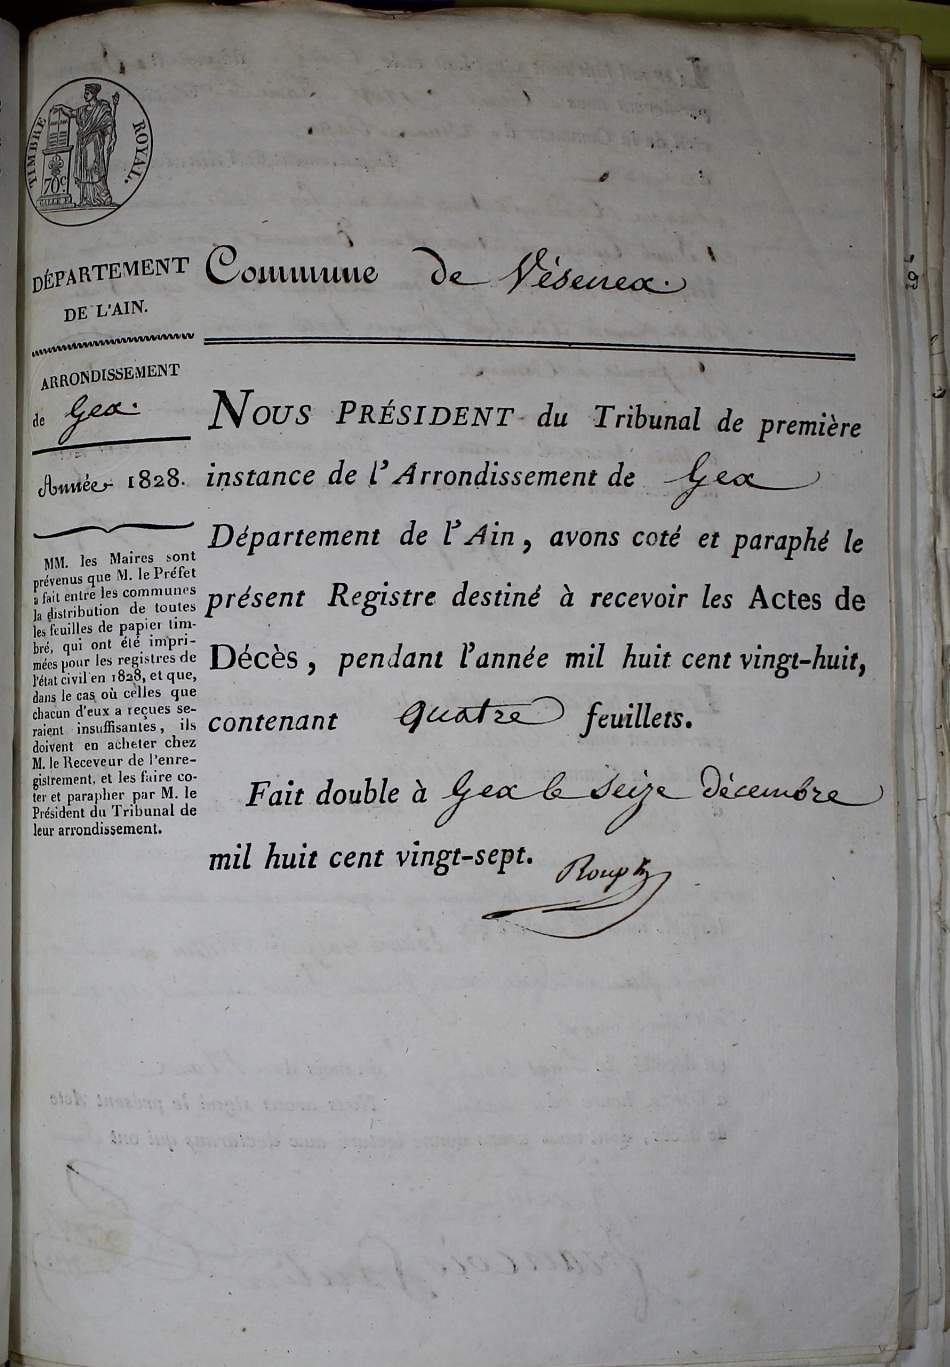 TIMBRE ROYAL.
70c
DÉPARTEMENT
DE L'AIN.
ARRONDISSEMENT
de Gex.
Année 1828.
MM. les Maires sont
prévenus que M. le Préfet
a fait entre les communes
la distribution de toutes
les feuilles de papier tim-
bré, qui ont été impri-
mées pour les registres de
l'état civil en 1828, et que,
dans le cas où celles que
chacun d'eux a reçues se-
raient insuffisantes, ils
doivent en acheter chez
M. le Receveur de l'enre-
gistrement, et les faire co-
ter et parapher par M. le
Président du Tribunal de
leur arrondissement.
Commune de Vésenex.
NOUS PRÉSIDENT du Tribunal de première
instance de l'Arrondissement de Gex
Département de l'Ain, avons coté et paraphé le
présent Registre destiné à recevoir les Actes de
Décès, pendant l'année mil huit cent vingt-huit,
contenant quatre feuillets.
Fait double à Gex le seize décembre
mil huit cent vingt-sept.